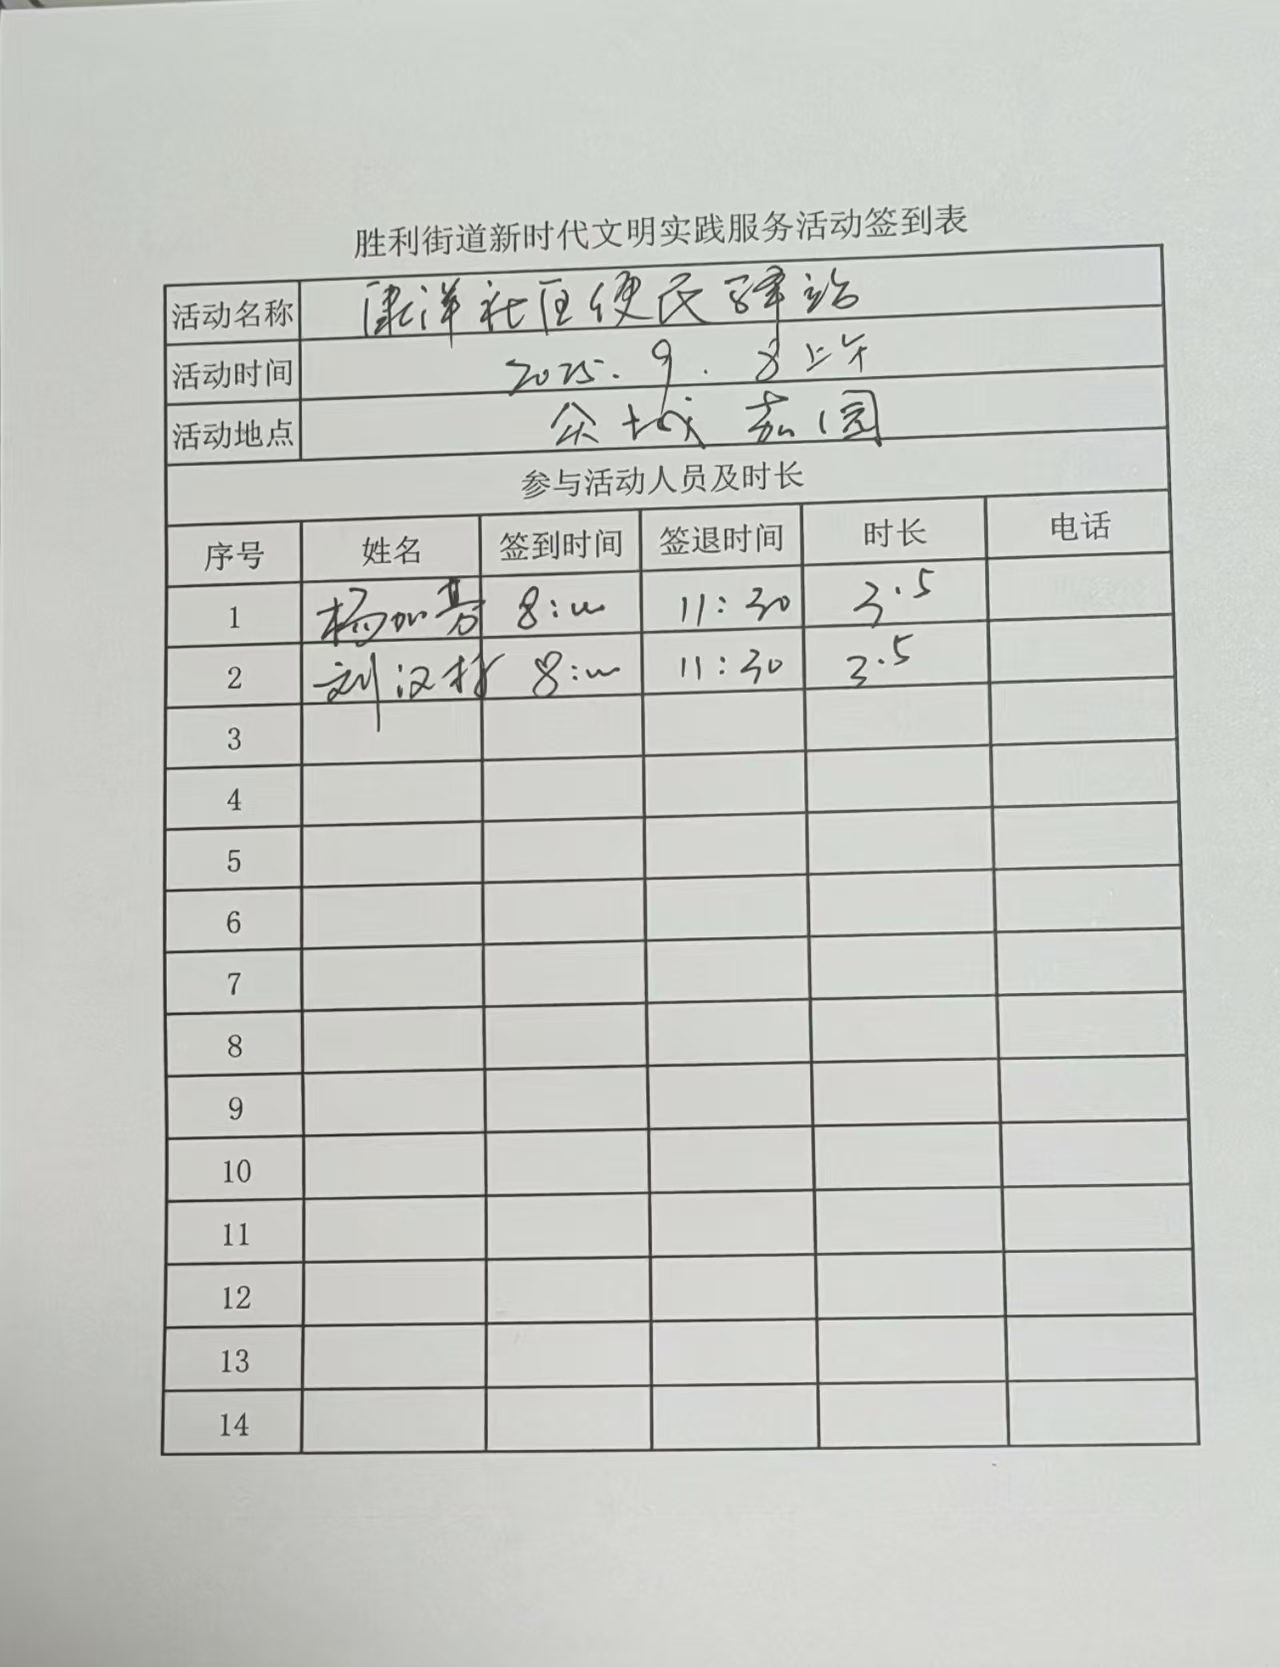 胜利街道新时代文明实践服务活动签到表
活动名称 康洋社区便民驿站
活动时间 2025.9.8上午
活动地点 众城嘉园
参与活动人员及时长
序号 姓名 签到时间 签退时间 时长 电话
1 杨加芳 8:00 11:30 3.5
2 刘汉村 8:00 11:30 3.5
3
4
5
6
7
8
9
10
11
12
13
14